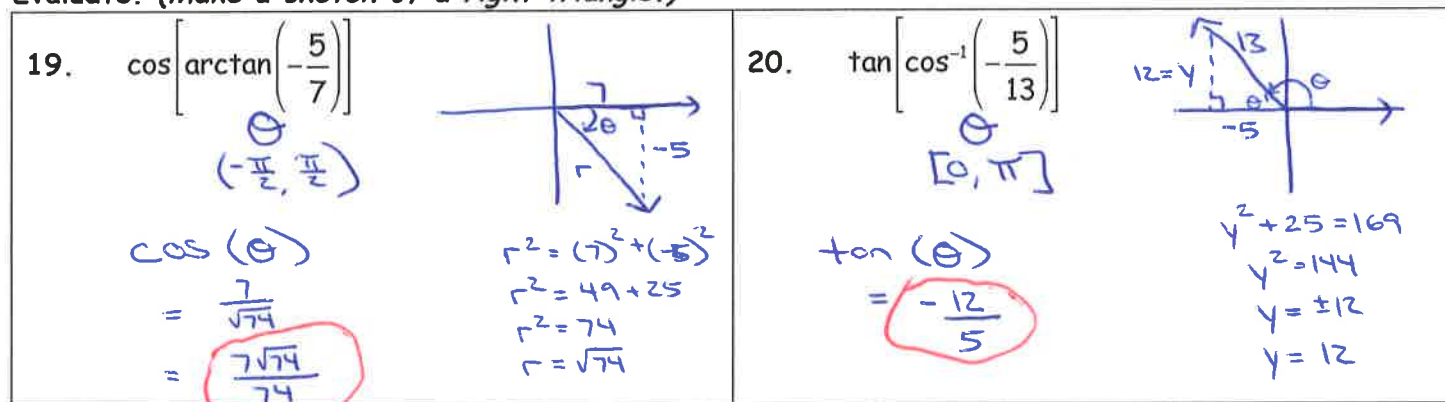 Evaluate. (Make a sketch of a right triangle.)
19. cos[arctan(-5/7)]
θ
(-π/2, π/2)
cos (θ)
= 7/√74
= 7√74/74
7
θ
-5
r
r² = (7)² + (-5)²
r² = 49 + 25
r² = 74
r = √74
20. tan[cos⁻¹(-5/13)]
θ
[0, π]
tan (θ)
= -12/5
13
12 = y
θ
θ
-5
y² + 25 = 169
y² = 144
y = ±12
y = 12